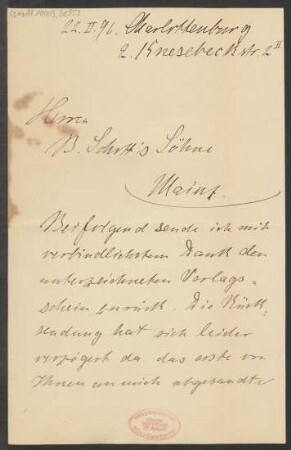 22.II.96. Charlottenburg
2. Knesebeckstr. 2 II
Herrn
B. Schott's Söhne
Mainz.
Beifolgend sende ich mit
verbindlichstem Dank den
unterzeichneten Verlags-
schein zurück. Die Rück-
sendung hat sich leider
verzögert da das erste von
Ihnen an mich abgesandte